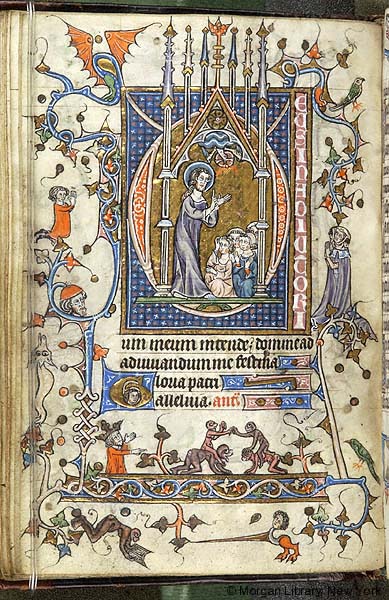 D
EUS IN ADIUTORI
um meum intende; domine ad
adiuuandum me festina
Gloria patri
alleluia. ant
© Morgan Library, New York